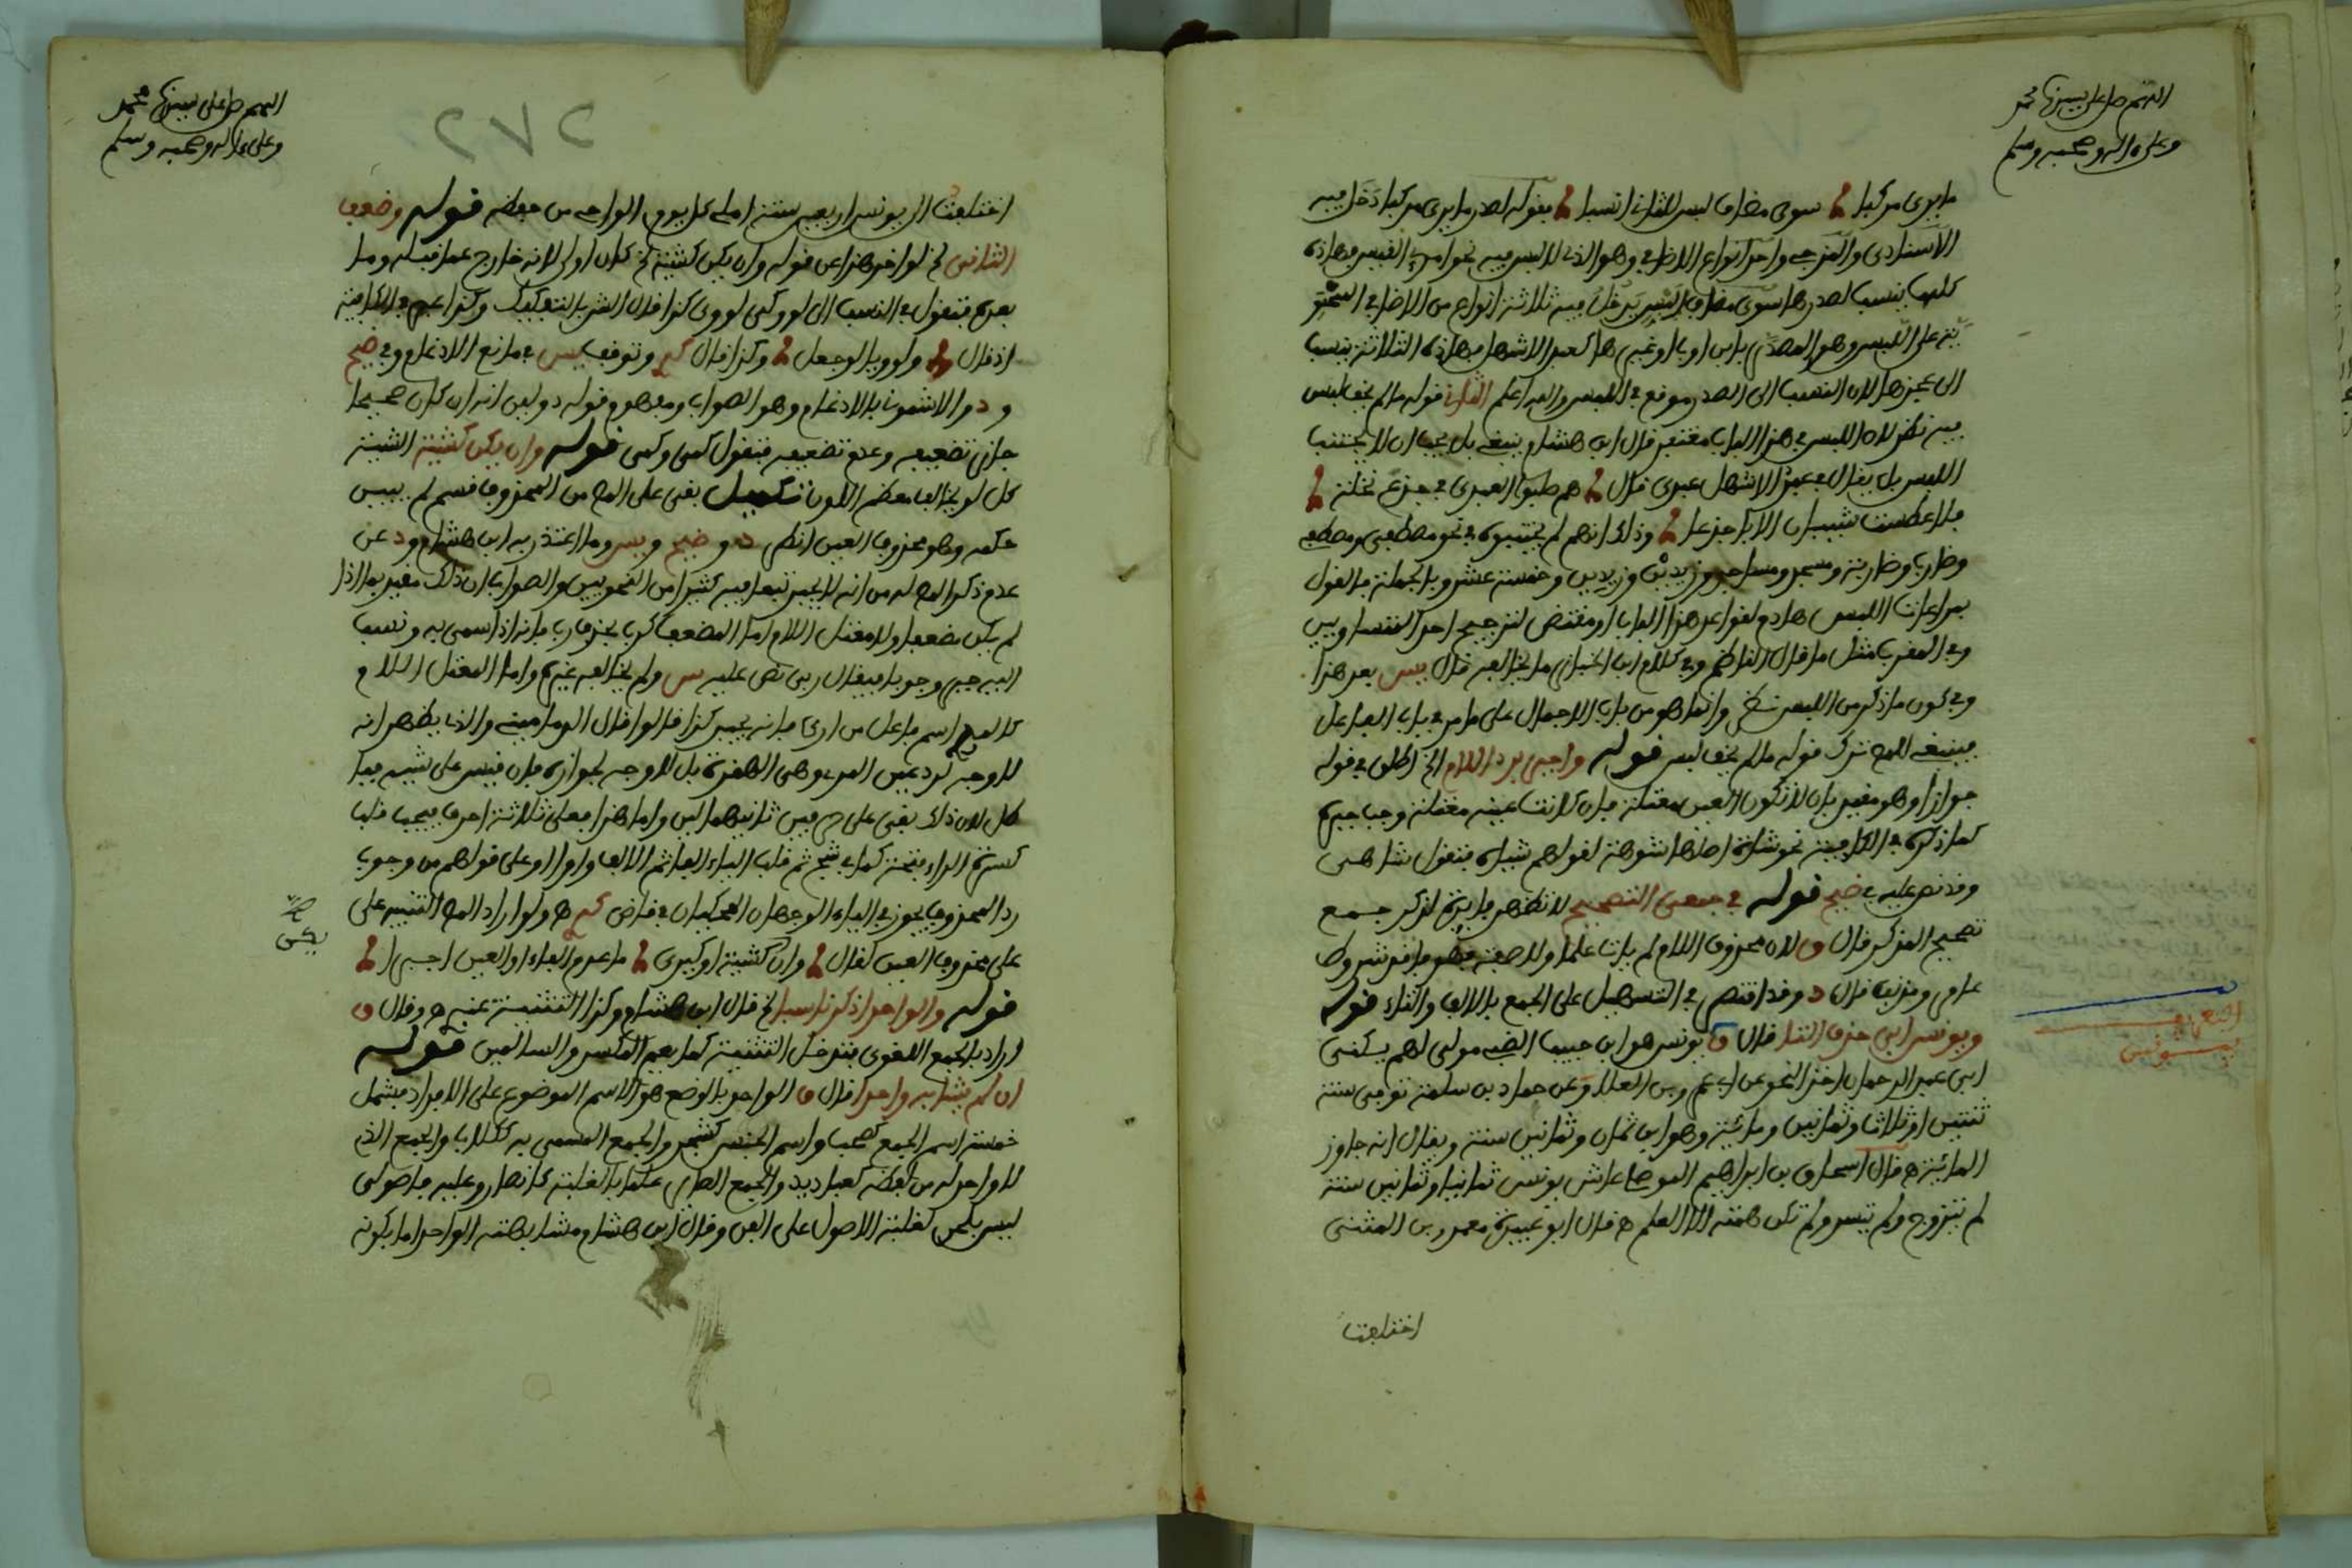 اللهم صل على سيدنا محمد
وعلى ءاله وصحبه وسلم
ما يرى مركبا سوى مضاف ليس للثان انتسبا فقوله لصدر ما يرى مركبا دخل فيه
الاسنادي والمزجي واحد انواع الاضافي وهو الذي لا لبس فيه نحو امرئ القيس فهاذه
كلها ينسب لصدرها سوى مضاف اليس يدخل فيه ثلاثة انواع من الاضافي المحتو
ية على اللبس وهو المصدر بابن او باب او غيرها كعبد الاشهل فهاذه الثلاثة ينسب
الى عجزها لان النسب الى الصدر موقع في اللبس والله اعلم الثان قوله ما لم يخف لبس
فيه نظر لان اللبس في هذا الباب مغتفر قال ابن هشام وينبغي بل يجب ان لا يجتنب
اللبس بل يقال في عبد الاشهل عبدي قال هم صلبوا العبدي في جذع نخلة
فلا عطست شيبان الا باجدعا وذلك انهم لم يجتنبوه في نحو مصطفى ومصطفي
وضارب وضاربة ومسجد ومساجد وزيدين وزيدين وخمسة عشر وبالجملة فالقول
بمراعات اللبس هادم لقواعد هذا الباب او مقتض لترجيح احد المتساويين
وفي المغرب مثل ما قال الناظم وفي كلام ابن الخباز ما يخالفه قال يس بعد هذا
وفي كون ما ذكر من اللبس نظر وانما هو من باب الاجمال على ما مر في باب الفاعل
فينبغي للمص ترك قوله ما لم يخف لبس قوله واجبر برد اللام الخ اطلق في قوله
جوازا وهو مقيد بان لا تكون العين معتلة فان كانت عينه معتلة وجب جبره
كما ذكره في الكافية نحو شاة اصلها شوهة لقولهم شياه فتقول شاهي
وقد نص عليه في ضيح قوله في جمعي التصحيح لا تظهر فايدة لذكر جمع
تصحيح المذكر قال ق لان محذوف اللام لم يات علما ولا صفة
عامر ومذنب قال د وقد اقتصر في التسهيل على الجمع بالالف والتاء قوله
ويونس ابى حذف التا قال ق يونس هو ابن حبيب الضبي مولى لهم يكنى
ابى عبد الرحمان اخذ النحو عن ابي عمرو بن العلا وعن حماد بن سلمة توفي سنة
ثنتين او ثلاث وثمانين ومائة وهو ابن ثمان وثمانين سنة ويقال انه جاوز
المائة قال اسحاق بن ابراهيم الموصلي عاش يونس ثمانيا وثمانين سنة
لم يتزوج ولم يتسر ولم تكن همته الا العلم قال ابو عبيدة معمر بن المثنى
التعريف
بيونس
اختلفت
٢٧٢
اللهم صل على سيدنا محمد
وعلى ءاله وصحبه وسلم
اختلفت الى يونس اربعين سنة املى كل يوم الواحي من حفظه قوله وضعف
الثاني الخ لو اخر هذا عن قوله وان يكن كشية الخ كان اولى لانه خارج عما قبله وما
بعده فتقول في النسب الى لو وكى لووي كذا قال الشر بالتفكيك
اذ قال ولووي بالوجعل وكذا قال وتوقف يس في مانع الادغام وفي ضيح
ود والاشموني بالادغام وهو الصواب ومفهوم قوله ذو لين انه ان كان صحيحا
جاز تضعيفه وعدم تضعيفه فتقول كمي وكمي قوله وان يكن كشية الشية
كل لون يخالف معظم اللون تكميل بقي على المص من المحذوف قسم لم يبين
حكمه وهو محذوف العين انظر د وضيح ويس وما اعتذر به ابن هشام ود عن
عدم ذكر المص له من انه لا يجبر تبعا فيه كثيرا من النحويين والصواب ان ذلك مقيد بما اذا
لم يكن مضعفا ولا معتل اللام اما المضعف كرب بحذف باء فانه اذا سمي به ونسب
اليه جبر وجوبا فيقال ربي نص عليه س ولم يخالفه غيره واما المعتل اللام
كالمري اسم فاعل من ارى فانه يجبر كذا قالوا قال الدماميني والذي يظهر انه
لا وجه لرد عين المري وهي الهمزة بل لا وجه لجوازه فان قيس على شية فبا
طل لان ذلك بقي على حرفين ثانيهما لين واما هذا فعلى ثلاثة احرف فيجب قلب
كسرة الراء فتحة كما في شج ثم قلب الياء الفا ثم الالف واوا وعلى قولهم من وجوب
رد المحذوف يجوز في الياء الوجهان المحكيان في قاض ولو اراد المص التنبيه على
على محذوف العين لقال وان كشية او كيرى ما عدم الفاء او العين اجبرا
قوله والواحد اذكر ناسبا الخ قال ابن هشام وكذا التثنية عنه وقال ق
اراد بالجمع اللغوي فتدخل التثنية كما يعم المكسر والسالمين قوله
ان لم يشابه واحدا قال ق الواحد بالوضع هو الاسم الموضوع على الافراد فيشمل
خمسة اسم الجمع كصحب واسم الجنس كشجر والجمع المسمى به ككلاب والجمع الذي
لا واحد له من لفظه كعباديد والجمع الصاير علما بالغلبة كانصار وعليه فاصولي
ليس بلحن لغلبة الاصول على الفن وقال ابن هشام ومشابهته الواحد اما بكونه